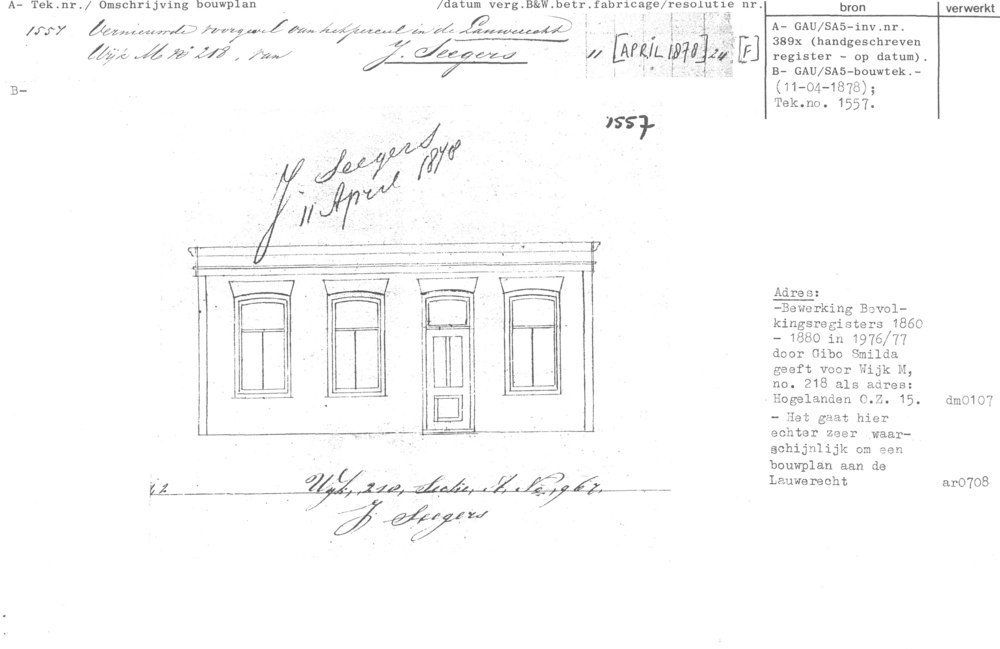 A- Tek.nr./ Omschrijving bouwplan /datum verg.B&W.betr.fabricage/resolutie nr.
bron
verwerkt
1557 Vernieuwde voorgevel van het perceel in de Lauwerecht
Wijk M No 218. van J. Seegers 11 [APRIL 1878] 24 [F]
A- GAU/SA5-inv.nr.
389x (handgeschreven
register - op datum).
B- GAU/SA5-bouwtek.-
(11-04-1878);
Tek.no. 1557.
B-
1557
J. Seegers
11 April 1878
Adres:
-Bewerking Bevol-
kingsregisters 1860
- 1880 in 1976/77
door Gibo Smilda
geeft voor Wijk M,
no. 218 als adres:
Hogelanden O.Z. 15. dm0107
- Het gaat hier
echter zeer waar-
schijnlijk om een
bouwplan aan de
Lauwerecht ar0708
Wijk, 210, Sectie, A, No, 967,
J Seegers